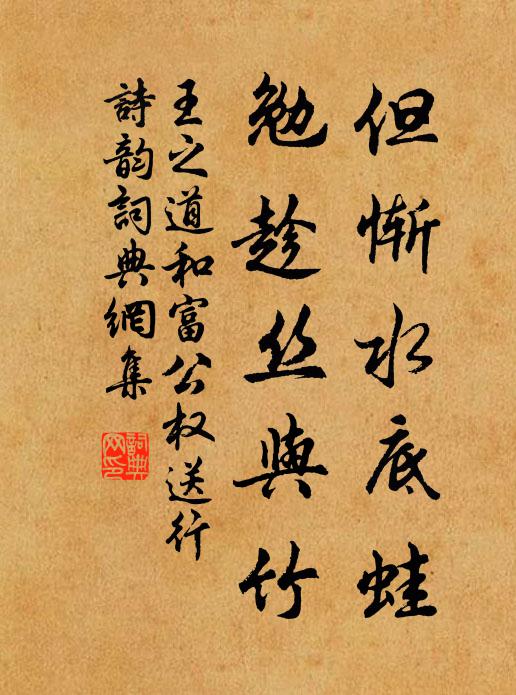 但惭水底蛙
勉趁丝與竹
王之道和富公权送行
詩韵詞典網集
詞典网印